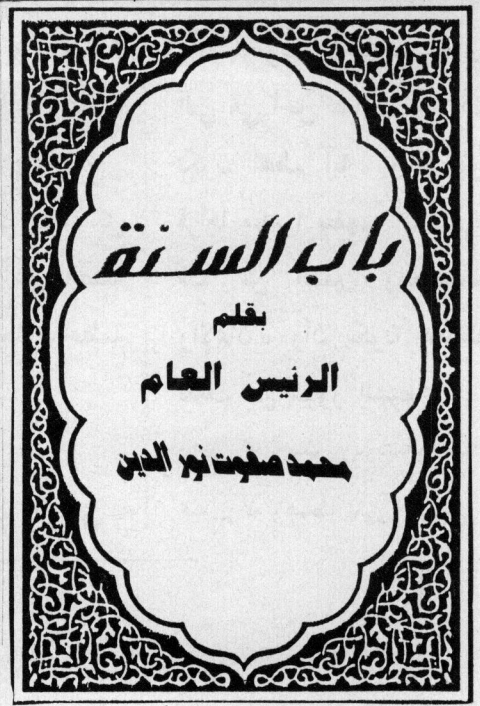 باب السنة
بقلم
الرئيس العام
محمد صفوت نور الدين